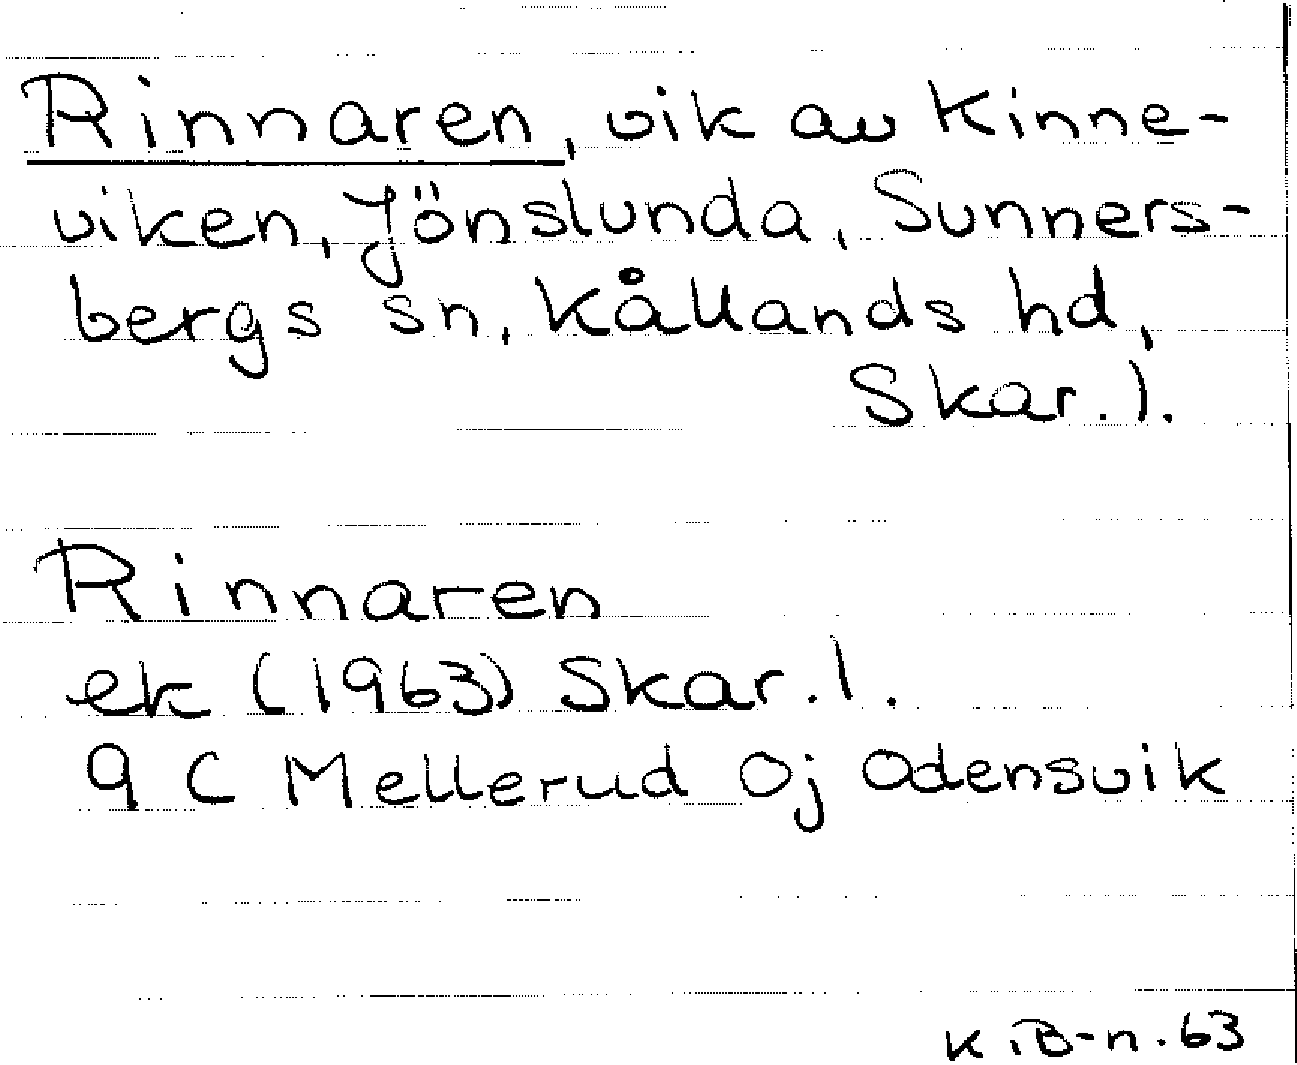 Rinnaren, vik av Kinne-
viken, Jönslunda, Sunners-
bergs sn, Kållands hd,
Skar. l.
Rinnaren
ek (1963) Skar. l.
9 C Mellerud Oj Odensvik
K iB-n. 63